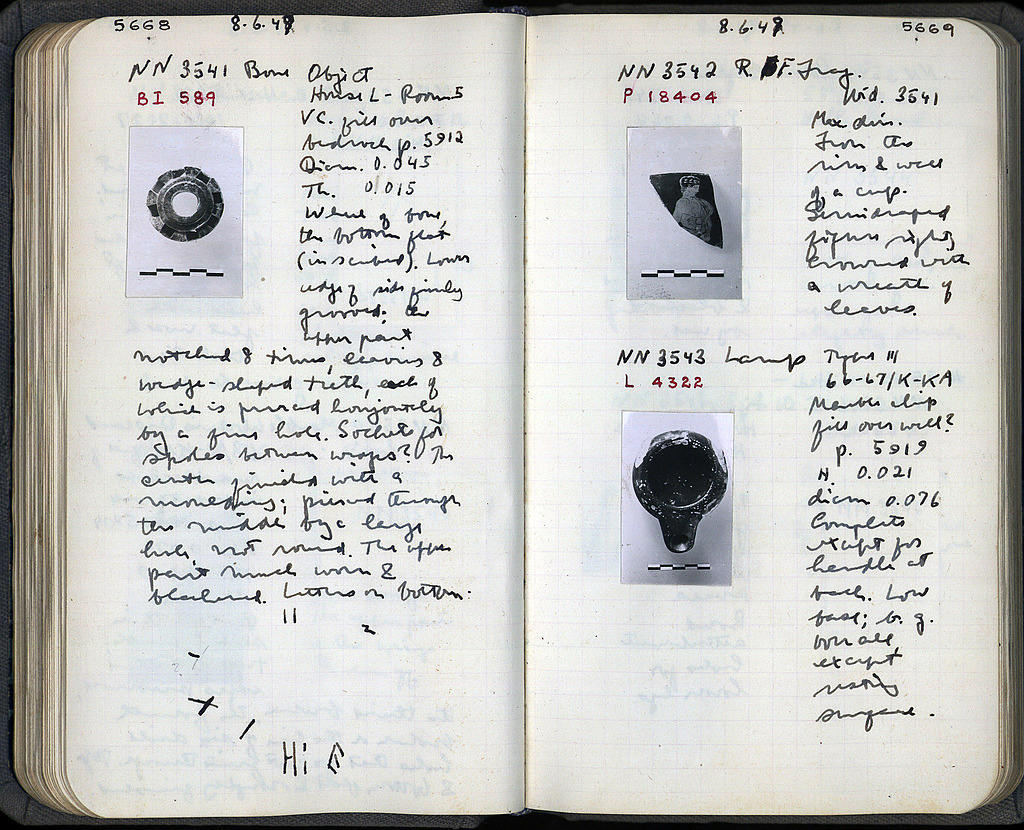 5668 8·6·47
NN 3541 Bone Object
BI 589
House L - Room 5
VC. fill over
bedrock p. 5912
Diam. 0.045
Th. 0.015
Wheel of bone,
the bottom flat
(inscribed). Lower
edge of side finely
grooved; the
upper part
notched 8 times, leaving 8
wedge-shaped teeth, each of
which is pierced
by a fine hole. Sockets for
spokes between wedges? The
center finished with a
moulding; pierced through
the middle by a large
hole, not round. The upper
part much worn &
blackened. Letters on bottom.
8·6·47 5669
NN 3542 R.F. Frag.
P 18404
Wid. 3541
Max dim.
From the
rim & wall
of a cup.
Semidraped
figure right,
crowned with
a wreath of
leaves.
NN 3543 Lamp Type III
L 4322
66-67/K-KA
Marble chip
fill over well?
p. 5919
H. 0.021
diam 0.076
Complete
except for
handle at
back. Low
base; b. g.
over all,
except
resting
surface.